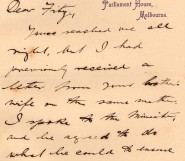 Parliament House,
Melbourne.
Dear Fitz,
Yours reached me all
right, but I had
previously received a
letter from your brother's
wife on the same matter.
I spoke to the Minister,
and he agreed to do
what he could to ensure